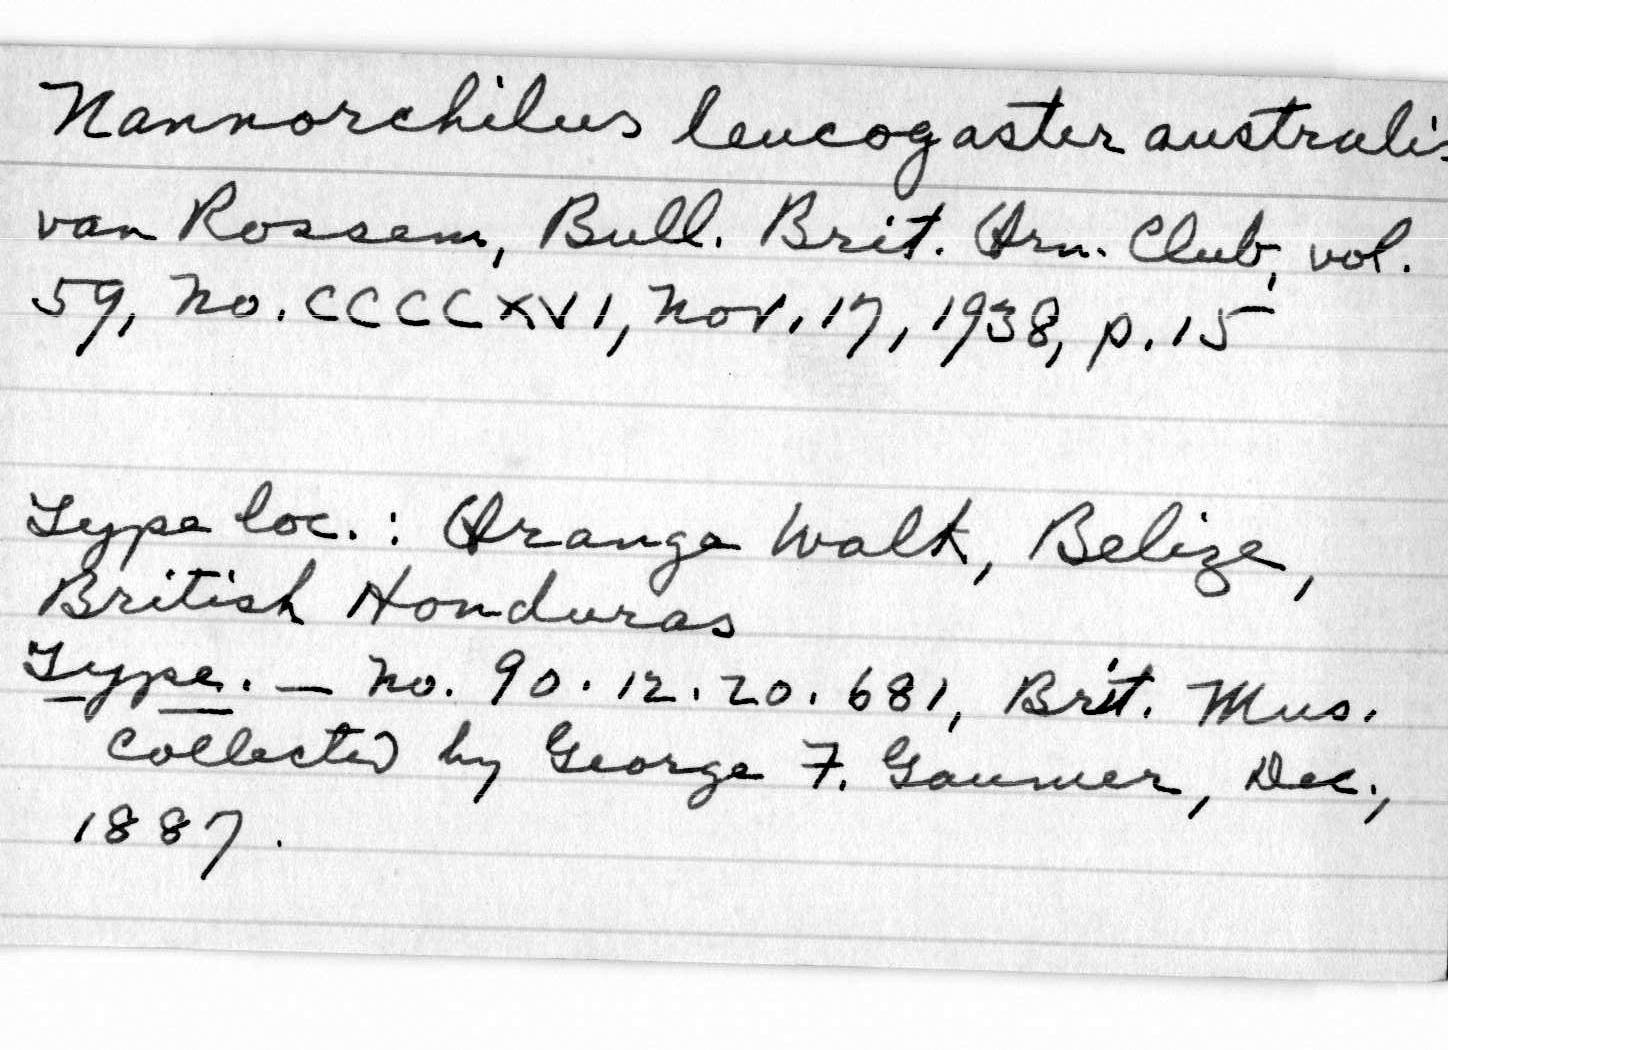 Nannorchilus leucogaster australis
van Rossem, Bull. Brit. Orn. Club, vol.
59, No. CCCCXVI, Nov. 17, 1938, p. 15
Type loc.: Orange Walk, Belize,
British Honduras
Type. — No. 90.12.20.681, Brit. Mus.
collected by George F. Gaumer, Dec.,
1887.